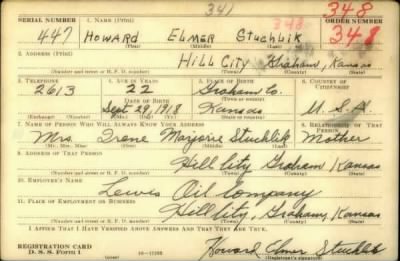 341
348
SERIAL NUMBER 1. NAME (Print) ORDER NUMBER
348
447 HOWARD ELMER Stuchlik 348
(First) (Middle) (Last)
2. ADDRESS (Print)
HILL CITY Graham, Kansas
(Number and street or R. F. D. number) (Town) (County) (State)
3. TELEPHONE 4. AGE IN YEARS 5. PLACE OF BIRTH 6. COUNTRY OF CITIZENSHIP
2613 22 Graham Co.
DATE OF BIRTH
Sept 29, 1918 Kansas U. S. A.
(Exchange) (Number) (Mo.) (Day) (Yr.) (State or country)
7. NAME OF PERSON WHO WILL ALWAYS KNOW YOUR ADDRESS 8. RELATIONSHIP OF THAT PERSON
Mrs. Irene Marjorie Stuchlik Mother
(Mr., Mrs., Miss) (First) (Middle) (Last)
9. ADDRESS OF THAT PERSON
Hill City Graham Kansas
(Number and street or R. F. D. number) (Town) (County) (State)
10. EMPLOYER'S NAME
Lewis Oil Company
11. PLACE OF EMPLOYMENT OR BUSINESS
Hill City, Graham, Kansas
(Number and street or R. F. D. number) (Town) (County) (State)
I AFFIRM THAT I HAVE VERIFIED ABOVE ANSWERS AND THAT THEY ARE TRUE.
REGISTRATION CARD
D. S. S. Form 1
Howard Elmer Stuchlik
(Registrant's signature)